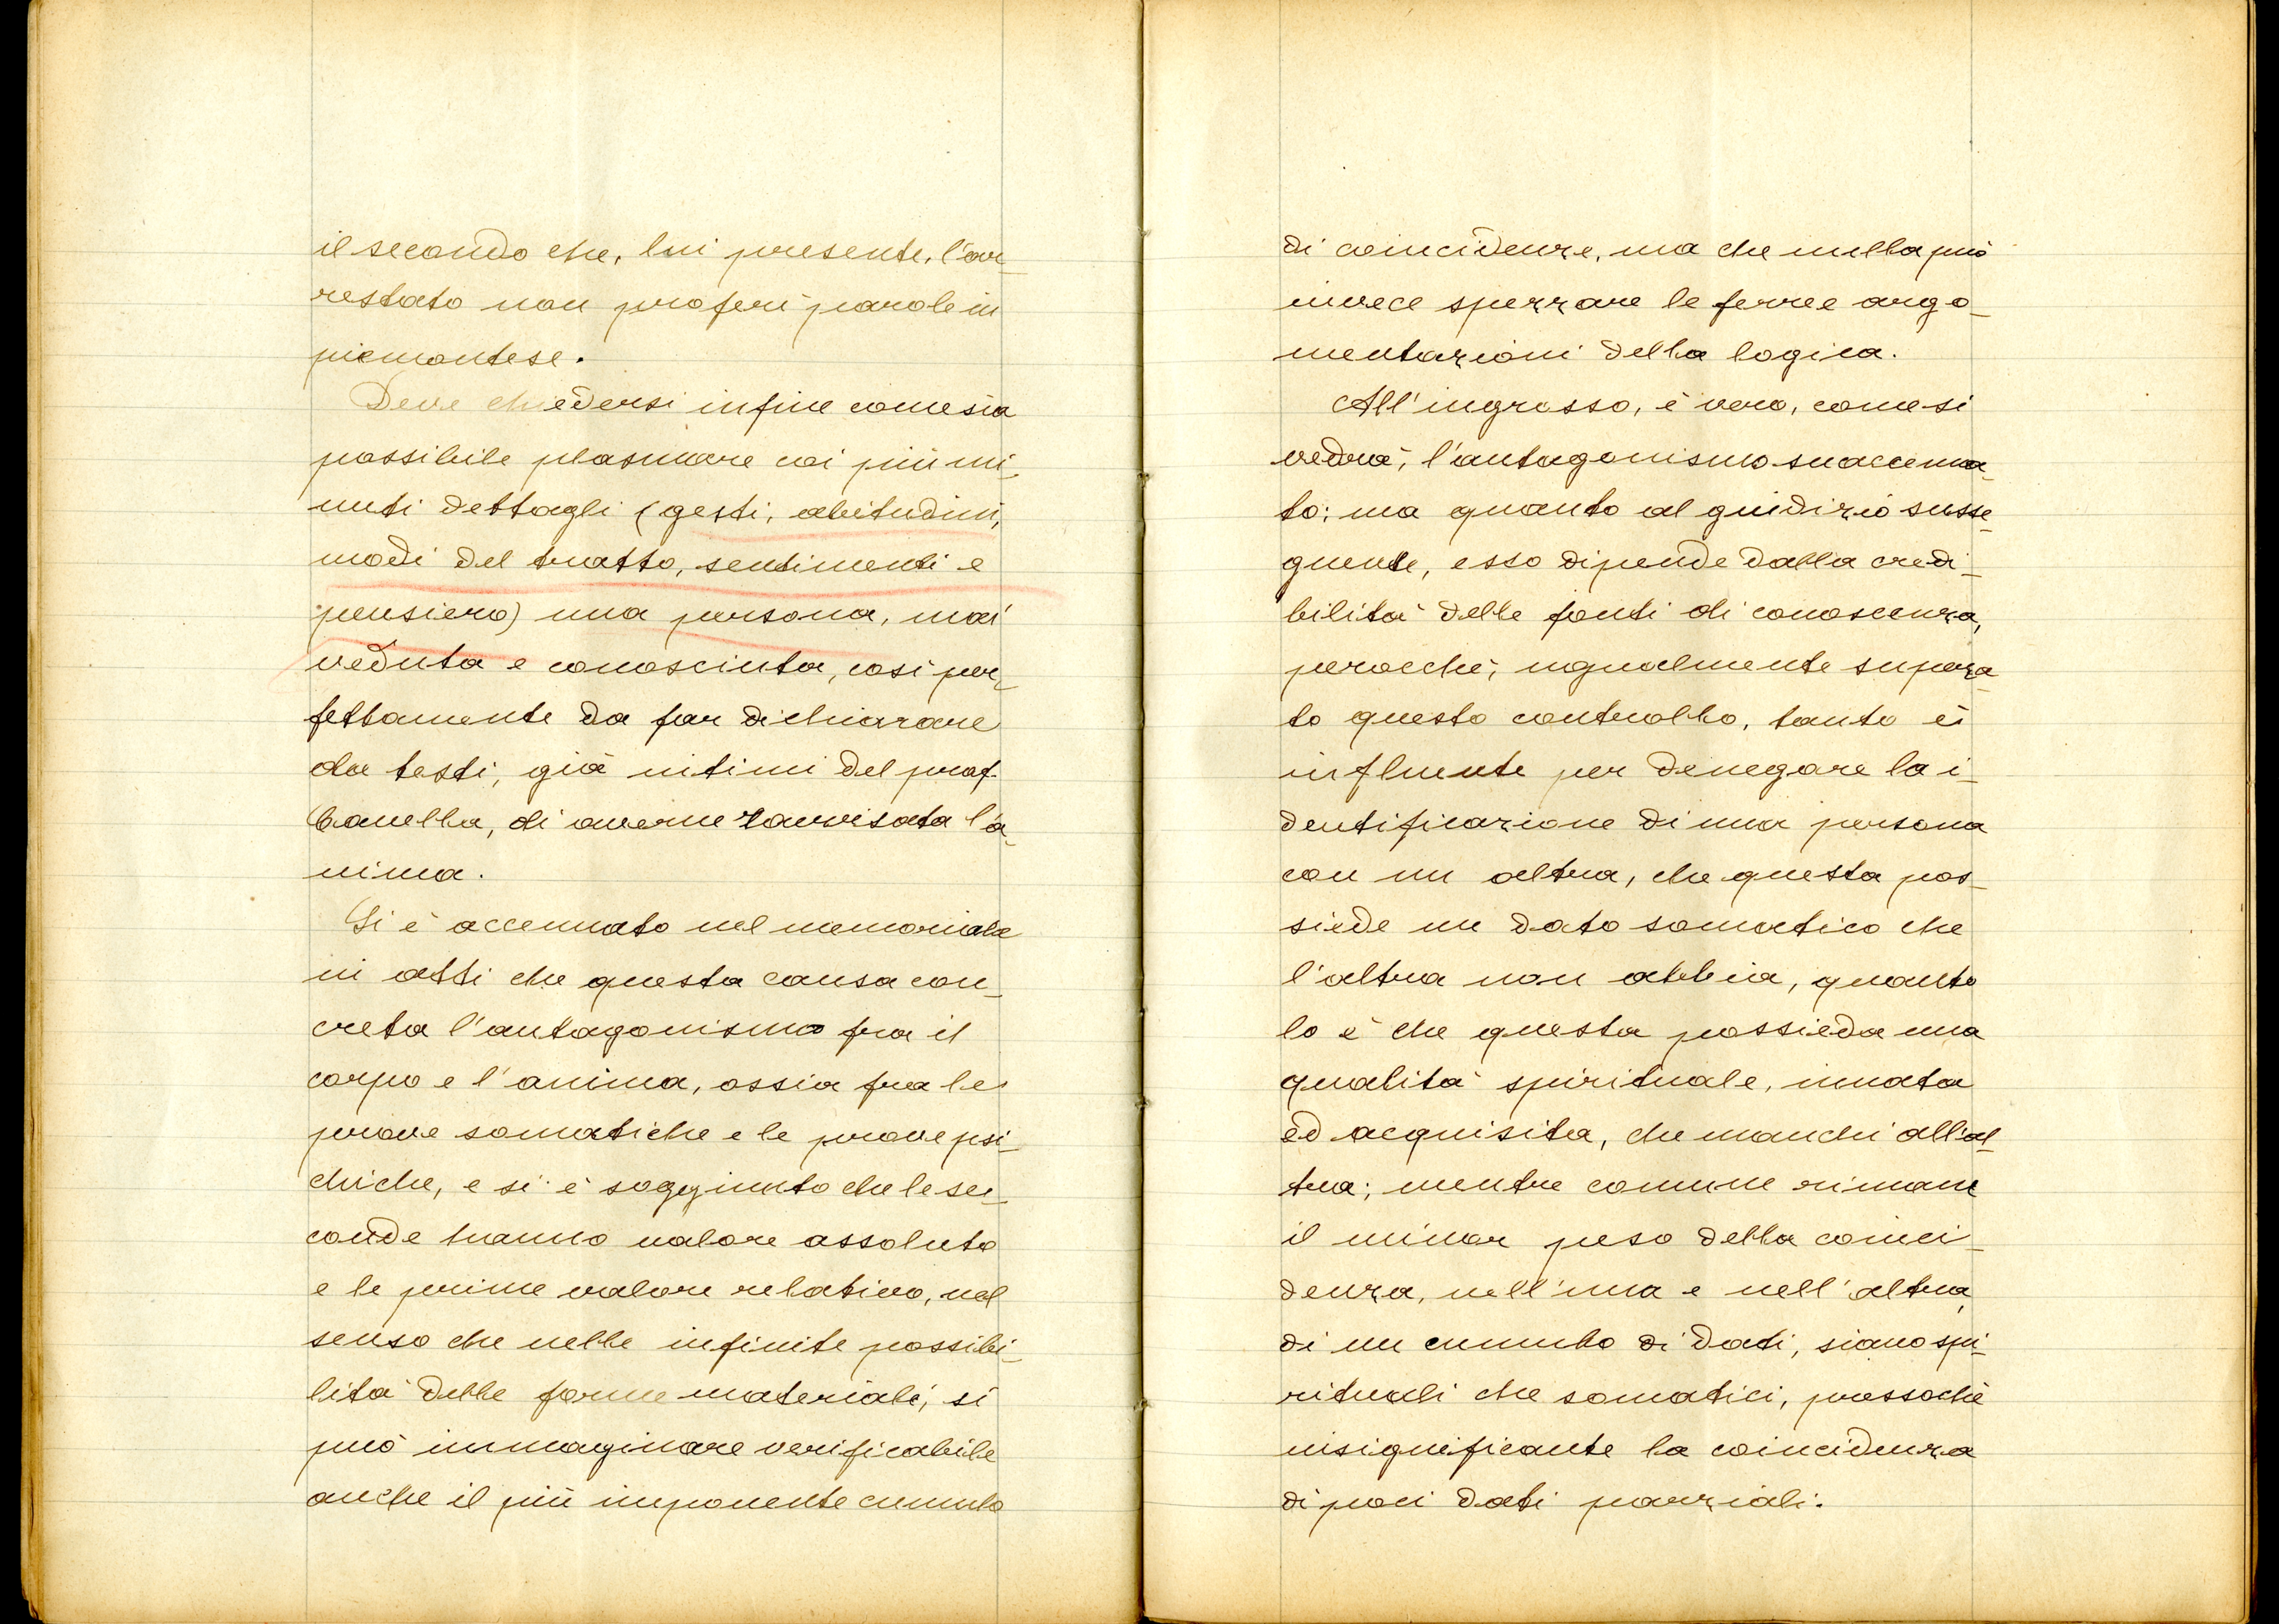 il secondo che, lui presente, l'ar_
restato non proferì parole in
piemontese.
Deve chiedersi infine come sia
possibile plasmare coi più mi_
nuti dettagli (gesti, abitudini,
modi del tratto, sentimenti e
pensiero) una persona, mai
veduta e conosciuta, così per_
fettamente da far dichiarare
da testi, già intimi del prof.
Canella, di averne ravvisata l'a_
nima.
Si è accennato nel memoriale
in atti che questa causa con_
creta l'antagonismo fra il
corpo e l'anima, ossia fra le
prove somatiche e le prove psi_
chiche, e si è soggiunto che le se_
conde hanno valore assoluto
e le prime valore relativo, nel
senso che nelle infinite possibi_
lità delle forme materiali, si
può immaginare verificabile
anche il più imponente cumulo
di coincidenze, ma che nulla può
invece spezzare le ferree argo_
mentazioni della logica.
All'ingrosso, è vero, come si
vedrà, l'antagonismo suaccenna_
to; ma quanto al giudizio susse_
guente, esso dipende dalla credi_
bilità delle fonti di conoscenza,
perocché, ugualmente supera_
to questo controllo, tanto è
influente per denegare la i_
dentificazione di una persona
con un altra, che questa pos_
siede un dato somatico che
l'altra non abbia, quanto
lo è che questa possieda una
qualità spirituale, innata
ed acquisita, che manchi all'al_
tra; mentre comune rimane
il minor peso della coinci_
denza, nell'una e nell'altra,
di un cumulo di dati, siano spi_
rituali che somatici, pressoché
insignificante la coincidenza
di poci dati parziali.